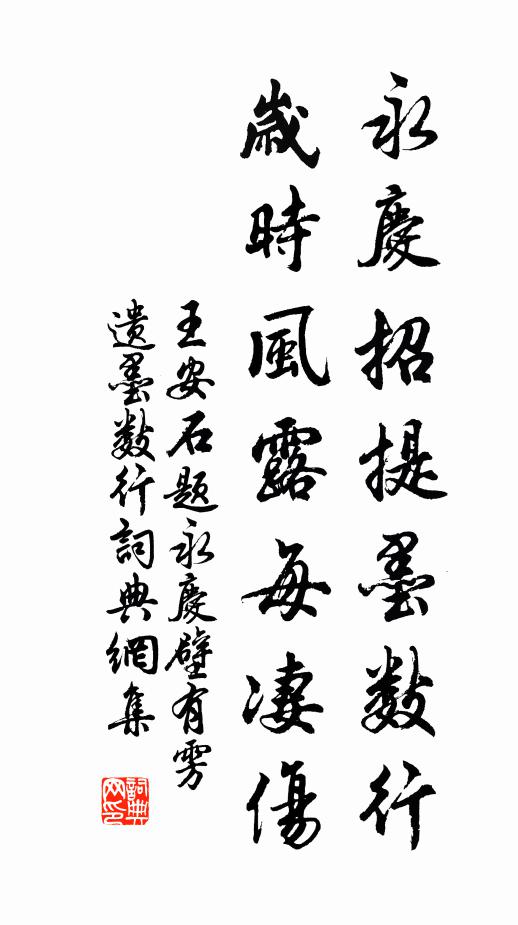 永慶招提墨數行
歲時風露每凄傷
王安石題永慶壁有雱
遺墨數行詞典網集
詞典网印